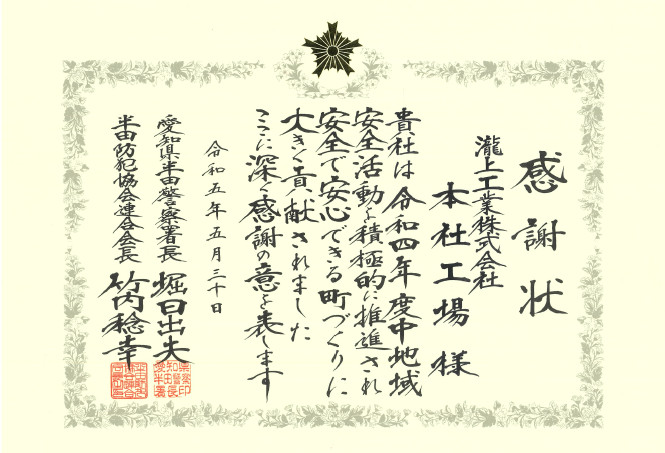 感謝状
瀧上工業株式会社
本社工場様
貴社は令和四年度中地域
安全活動を積極的に推進され
安全で安心できる町づくりに
大きく貢献されました
ここに深く感謝の意を表します
令和五年五月三十日
愛知県半田警察署長 堀日出夫
半田防犯協会連合会長 竹内稔幸